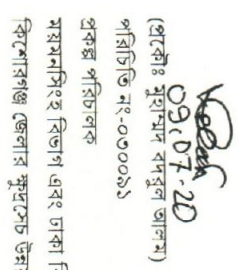 09.07.20
(প্রকৌঃ মুহাম্মদ বদরুল আলম)
পরিচিতি নং-০৩০০৯৯
প্রকল্প পরিচালক
ময়মনসিংহ বিভাগ এবং ঢাকা বি
কিশোরগঞ্জ জেলার ক্ষুদ্রসেচ উন্নয়